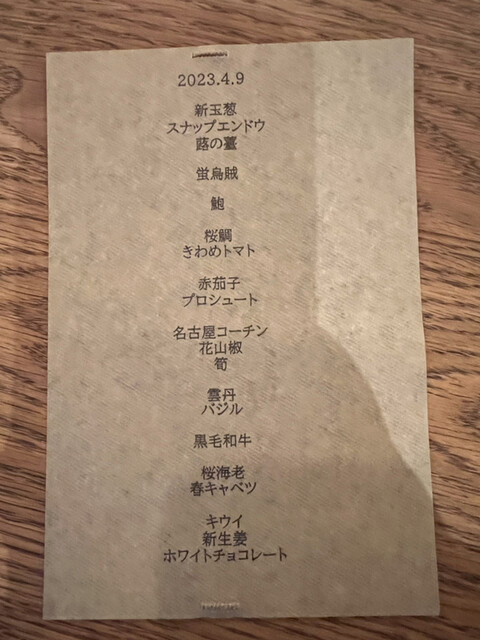 2023.4.9
新玉葱
スナップエンドウ
蕗の薹
蛍烏賊
鮑
桜鯛
きわめトマト
赤茄子
プロシュート
名古屋コーチン
花山椒
筍
雲丹
バジル
黒毛和牛
桜海老
春キャベツ
キウイ
新生姜
ホワイトチョコレート